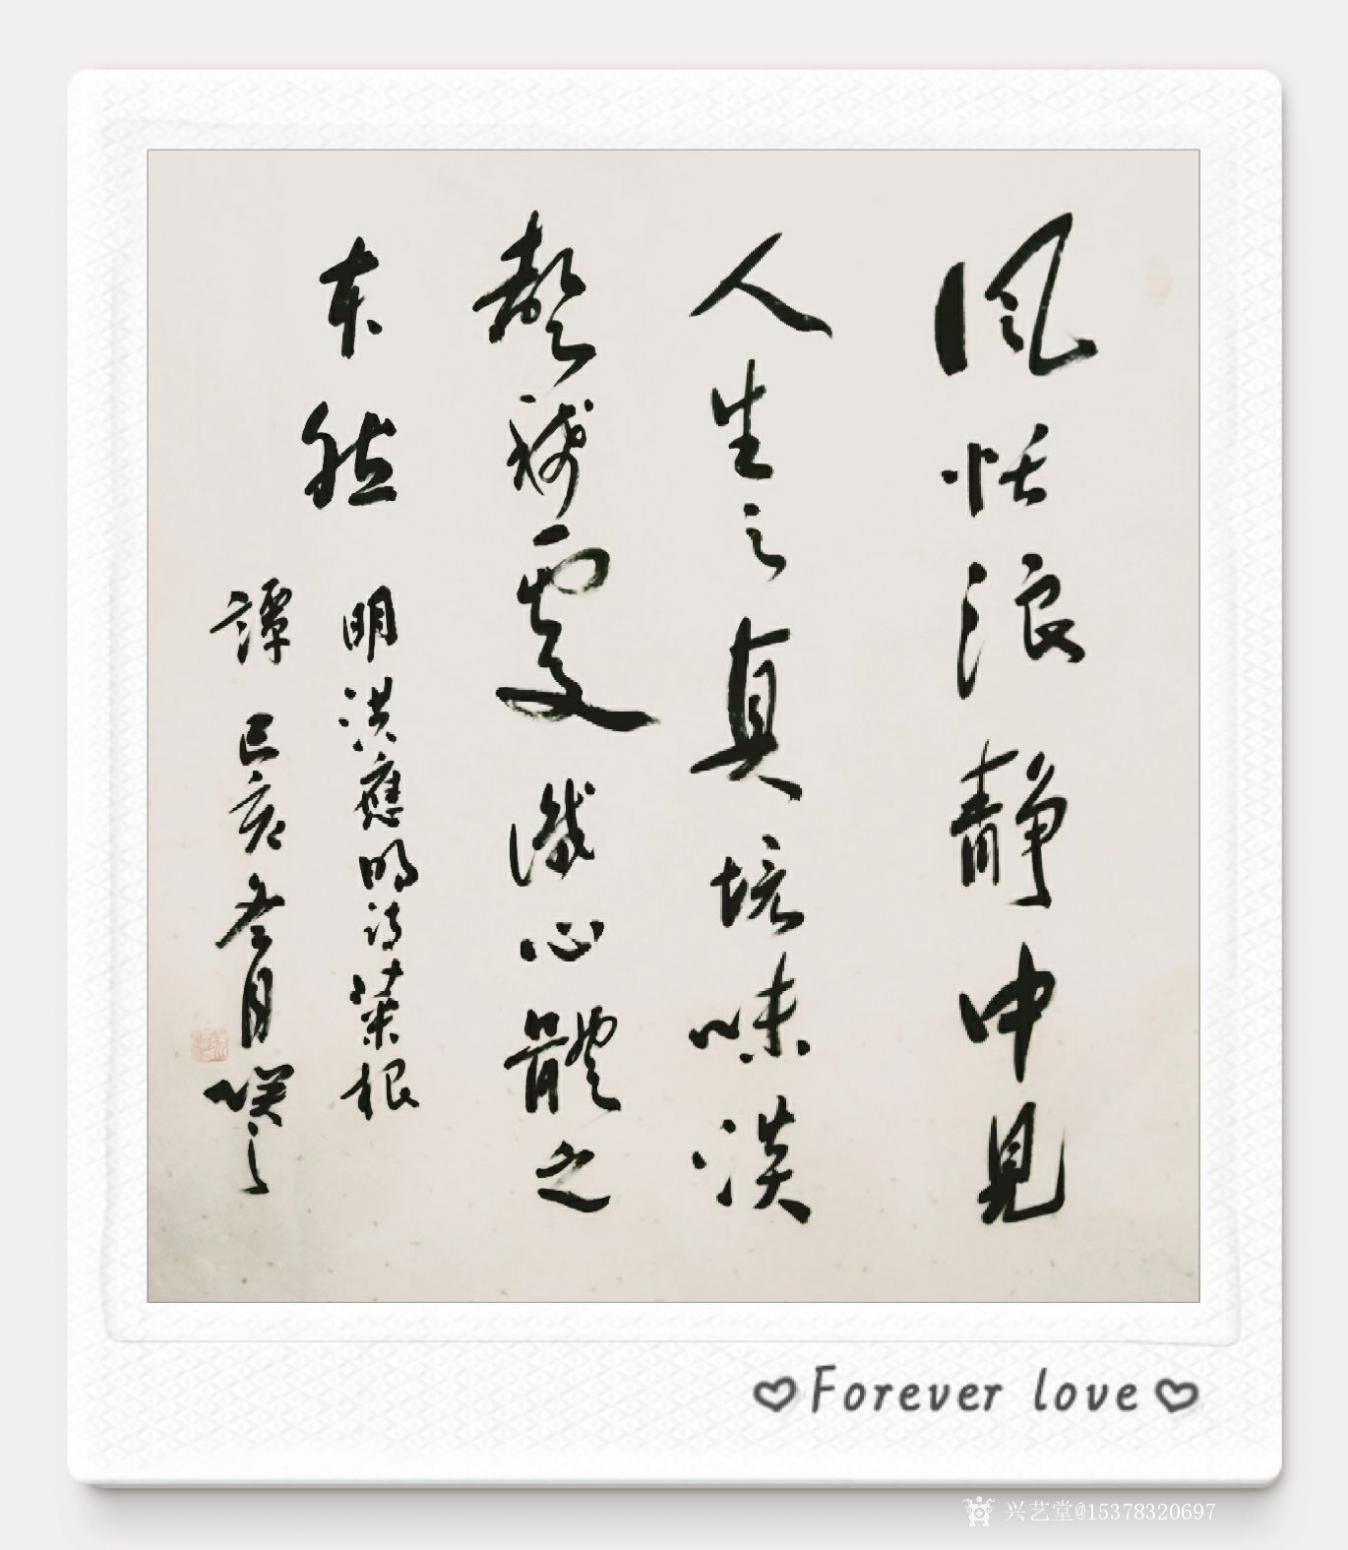 風恬浪靜中見
人生之真境味淡
聲稀處識心體之
本然 明洪應明詩菜根
譚 己亥冬月
Forever love
兴艺堂@15378320697